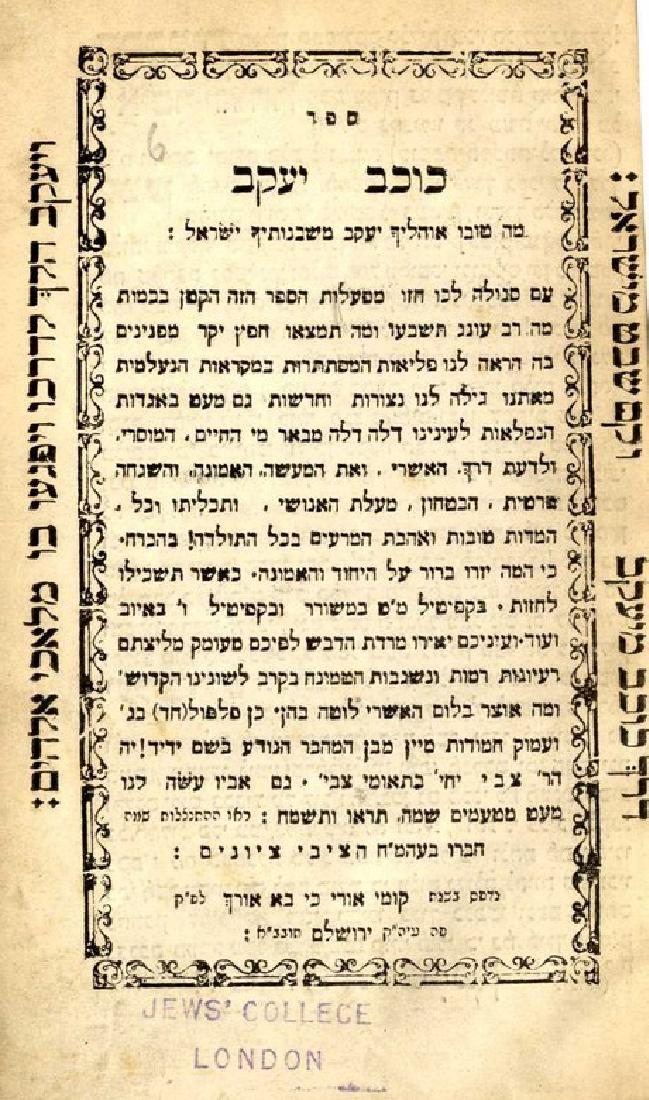 ספר
כוכב יעקב
מה טובו אוהליך יעקב משכנותיך ישראל :
עם סגולה לכו חזו מפעלות הספר הזה הקטן בכמות
מה רב עונג תשבעו ומה תמצאו חפץ יקר מפנינים
בה הראה לנו פליאות המסתתרות במקראות הנעלמית
מאתנו גילה לנו נצורות וחדשות גם מעט באגדות
הנפלאות לעינינו דלה דלה מבאר מי החיים, המוסרי,
ולדעת דרך, האשרי, ואת המעשה, האמונה, והשגחה
פרטית, הבטחון, מעלת האנושי, ותכליתו וכל,
המדות טובות ואהבת המרעים בכל התולדה! בהכרח.
כי המה יורו ברור על היחוד והאמונה. כאשר תשכילו
לחזות. בקפיטיל מ"ט במשורר ובקפיטיל ו' באיוב
ועוד.ועיניכם יאירו מרדת הדבש לפיכם מעומק מליצתם
רעיונות רמות ונשגבות הטמינה בקרב לשונינו הקדוש'
ומה אוצר בלום האשרי לוטה בהן. כן פלפול(חד) בג'
ועמוק חמודות מיין מבן המחבר הנודע בשם ידיד!יה
הר' צבי יחי' בתאומי צבי'. גם אביו עשה לנו
מעט מטעמים שמה, תראו ותשמח : כאו ההתגוללות שמה
חברו בעהמ"ח הציבי ציונים :
נדפס בשנת קומי אורי כי בא אורך לפ"ק
פה עיה"ק ירושלם תובב"א :
ויעקב הלך לדרכו ויפגעו בו מלאכי אלהים:
דרך כוכב מיעקב וקם שבט מישראל:
6
JEWS' COLLEGE
LONDON